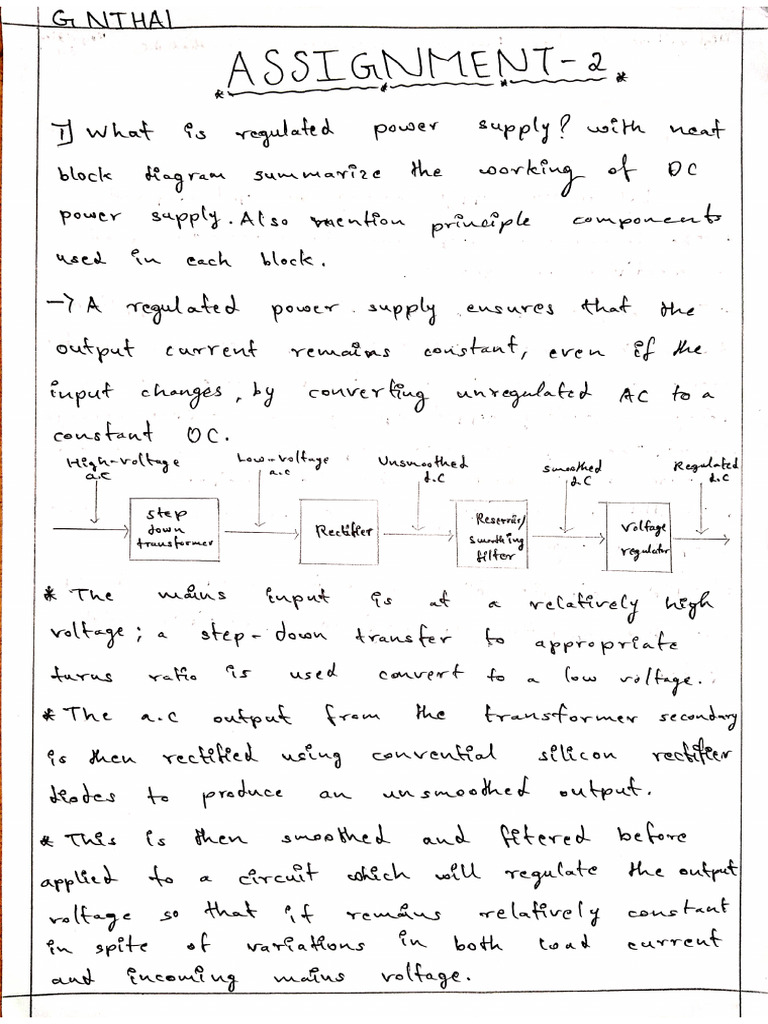 G NTHAI
ASSIGNMENT-2
1) What is regulated power supply? with neat
block diagram summarize the working of DC
power supply. Also mention principle components
used in each block.
→ A regulated power supply ensures that the
output current remains constant, even if the
input changes, by converting unregulated AC to a
constant DC.
High-voltage a.c
Low-voltage a.c
Unsmoothed d.c
smoothed d.c
Regulated d.c
step down transformer
Rectifier
Reservoir/ smoothing filter
voltage regulator
* The mains input is at a relatively high
voltage; a step-down transfer to appropriate
turns ratio is used convert to a low voltage.
* The a.c output from the transformer secondary
is then rectified using convential silicon rectifier
diodes to produce an unsmoothed output.
* This is then smoothed and filtered before
applied to a circuit which will regulate the output
voltage so that if remains relatively constant
in spite of variations in both load current
and incoming mains voltage.